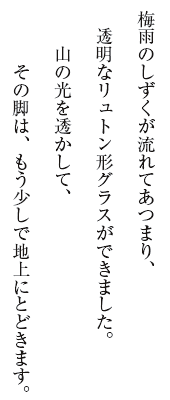 梅雨のしずくが流れてあつまり、
透明なリュトン形グラスができました。
山の光を透かして、
その脚は、もう少しで地上にとどきます。